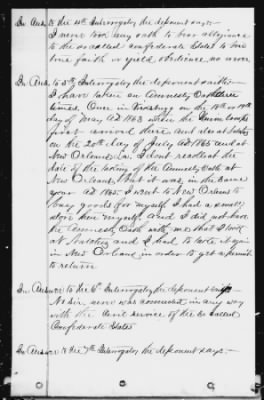 In Ans. to the 4th Interrogatory the deponent says:—
I never took any oath to bear allegiance
to the so called Confederate States to bear
true faith or yield obedience, no never
In Ans. to 5th Interrogatory the deponent saith:—
I have taken an Amnesty Oath three
times. Once in Vicksburg on the 18th or 19th
day of May AD 1863 when the Union troops
first arrived there and also at Natchez
on the 20th day of July AD 1865 and at
New Orleans La. I dont recollect the
date of the taking of the Amnesty Oath at
New Orleans, but it was in the same
year AD 1865. I went to New Orleans to
buy goods for myself. I had a small
store then myself. And I did not have
the Amnesty Oath with me that I took
at Natchez and I had to take it again
in New Orleans in order to get a permit
to return
In Answer to the 6th Interrogatory the deponent says
No Sir, never was connected in any way
with the Civil service of the so called
Confederate States
In Answer to the 7th Interrogatory the deponent says:—